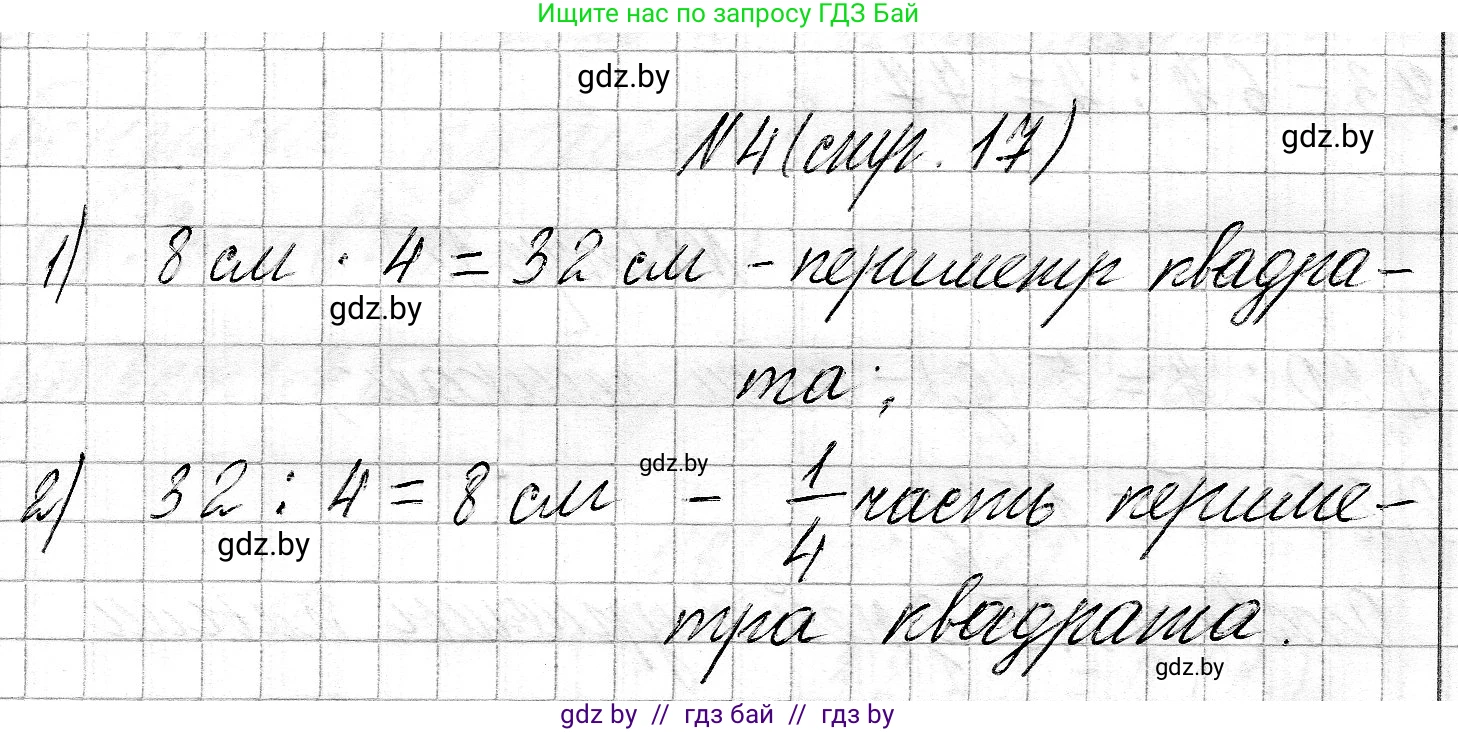 Ищите нас по запросу ГДЗ Бай
gdz.by
N4 (стр. 17)
gdz.by
1) 8 см · 4 = 32 см - периметр квадра-
gdz.by
та;
2) 32 : 4 = 8 см - 1/4 часть периме-
gdz.by
gdz.by
тра квадрата.
gdz.by
gdz by // гдз бай // гдз by